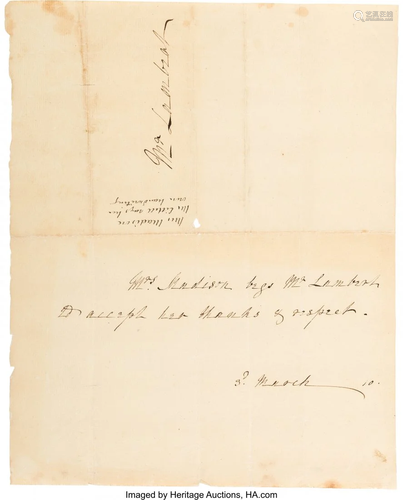 Mr Lambert
Mrs Madison
Mr Lambert says her
own handwriting
Mrs. Madison begs Mr Lambert
to accept her thanks & respect.
3d March 10.
Imaged by Heritage Auctions, HA.com